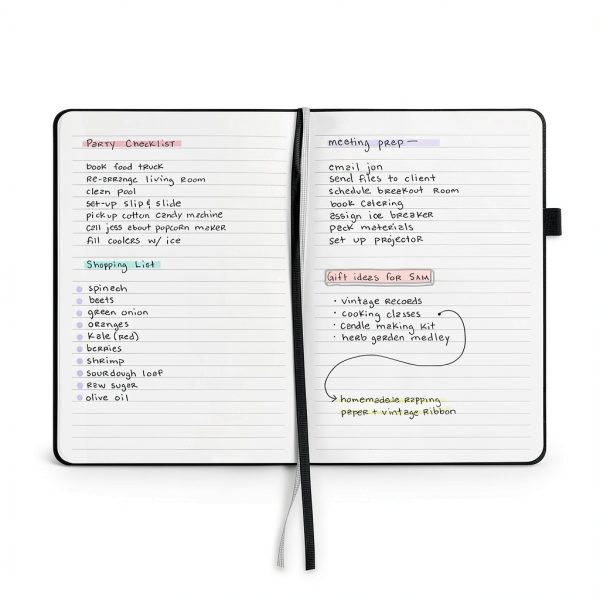 Party Checklist
book food truck
re-arrange living room
clean pool
set-up slip & slide
pick up cotton candy machine
call jess about popcorn maker
fill coolers w/ ice
Shopping List
spinach
beets
green onion
oranges
kale (red)
berries
shrimp
sourdough loaf
raw sugar
olive oil
meeting prep —
email jon
send files to client
schedule breakout room
book catering
assign ice breaker
pack materials
set up projector
Gift ideas for Sam
• vintage records
• cooking classes
• candle making kit
• herb garden medley
homemade rapping
paper + vintage ribbon